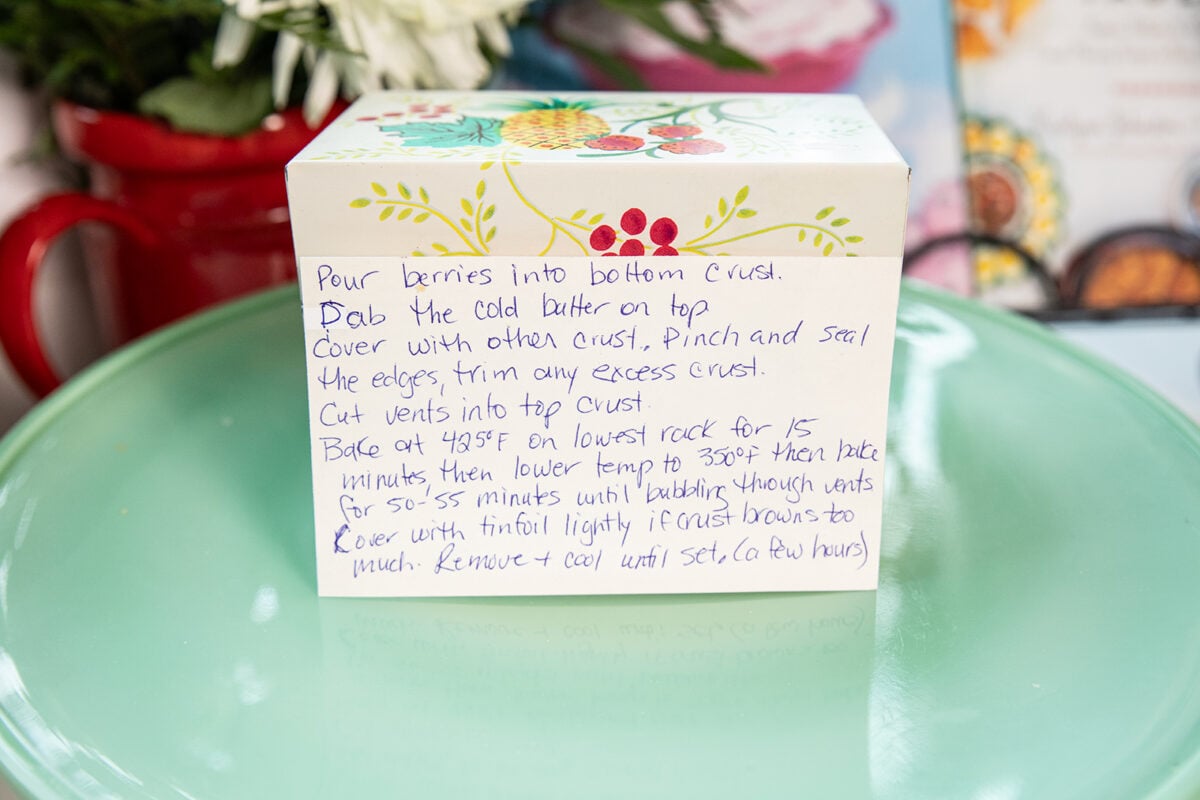 Pour berries into bottom crust.
Dab the cold butter on top
Cover with other crust. Pinch and seal
the edges, trim any excess crust.
Cut vents into top crust.
Bake at 425°F on lowest rack for 15
minutes, then lower temp to 350°F then bake
for 50-55 minutes until bubbling through vents
Cover with tinfoil lightly if crust browns too
much. Remove + cool until set. (a few hours)